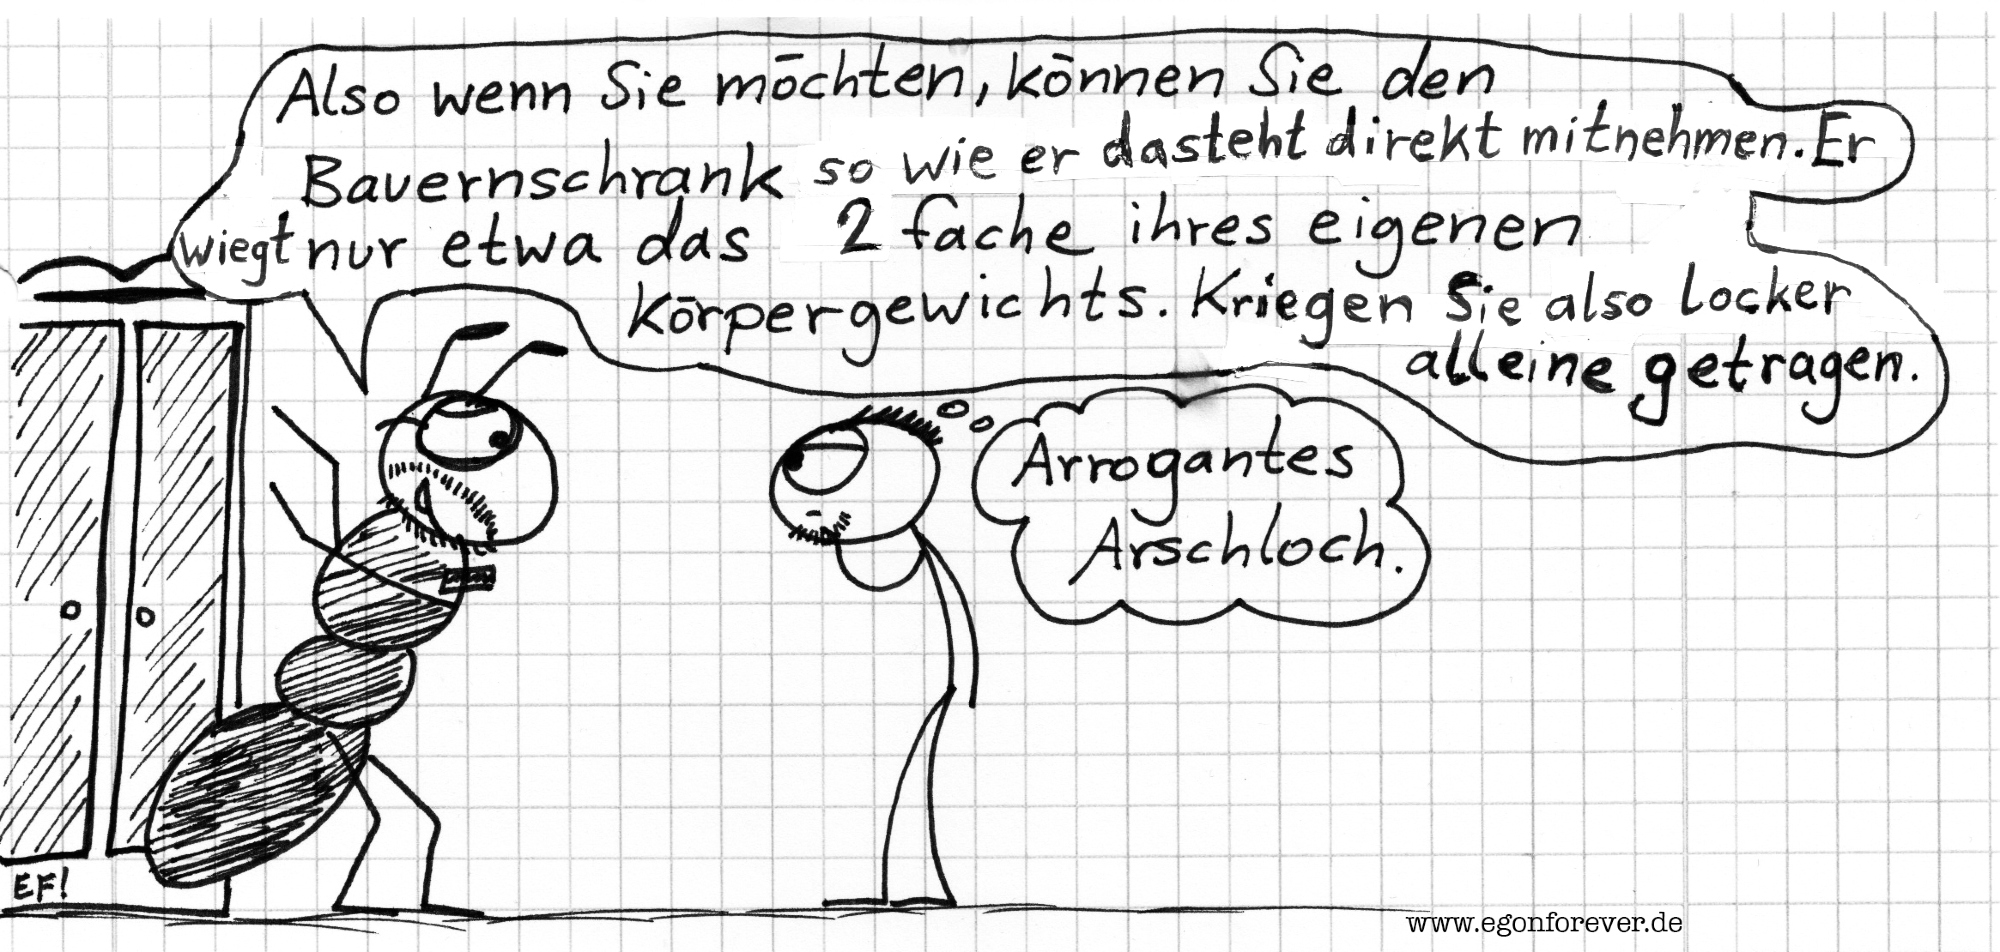 Also wenn Sie möchten, können Sie den
Bauernschrank so wie er dasteht direkt mitnehmen. Er
wiegt nur etwa das 2 fache ihres eigenen
Körpergewichts. Kriegen Sie also locker
alleine getragen.
Arrogantes
Arschloch.
EF!
www.egonforever.de